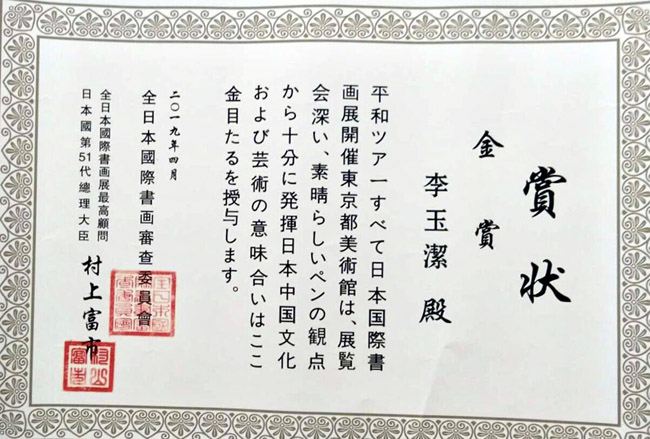 賞状
金賞
李玉潔 殿
平和ツアーすべて日本国際書
画展開催東京都美術館は、展覧
会深い、素晴らしいペンの観点
から十分に発揮日本中国文化
および芸術の意味合いはここ
金目たるを授与します。
二〇一九年四月
全日本國際書画審查委員會
全日本國際書画展最高顧問
日本國第51代總理大臣
村上富市